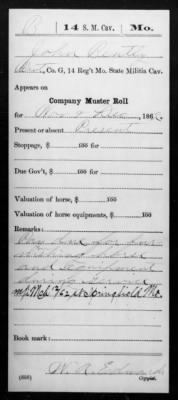 14 S. M. Cav. Mo.
John Bently
Co. G, 14 Reg't Mo. State Militia Cav.
Appears on
Company Muster Roll
for Nov & Dec, 186
Present or absent Present
Stoppage, $ 100 for
Due Gov't, $ 100 for
Valuation of horse, $ 100
Valuation of horse equipments, $ 100
Remarks:
Pay due for
horse
and equipment
during
Springfield Mo.
Book mark:
W. A. Edwards
(656) Copyist.